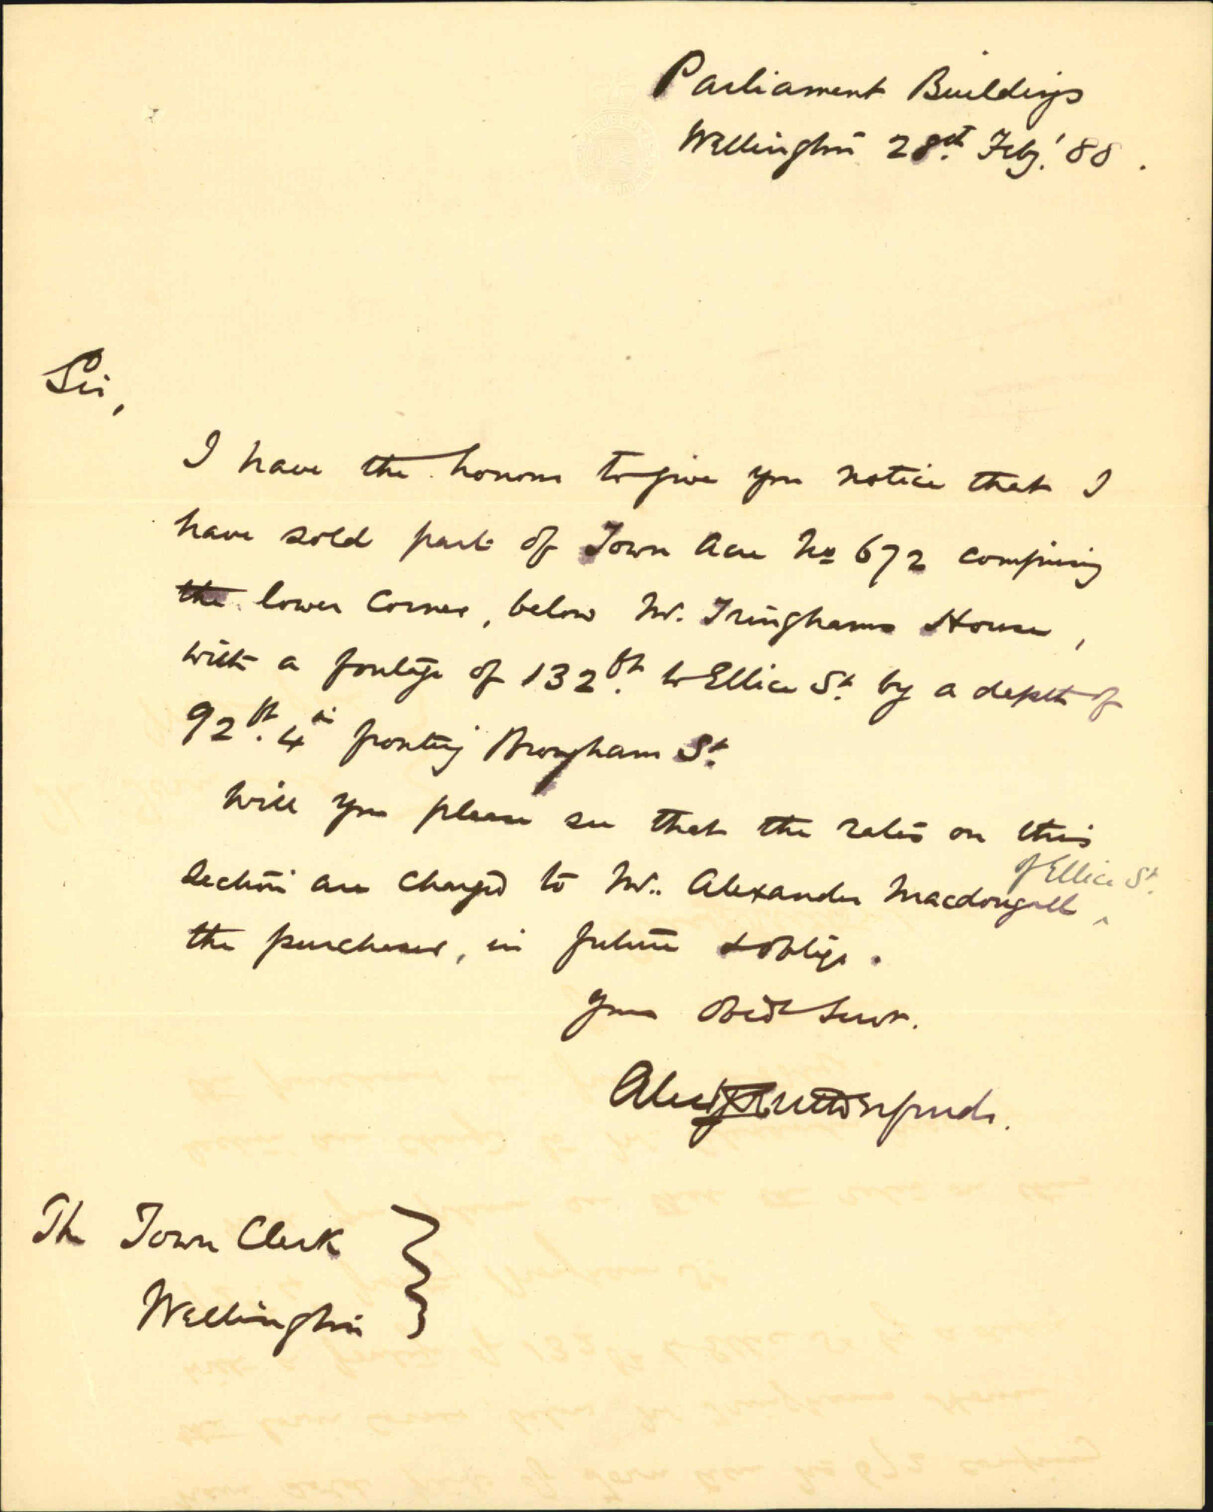 Parliament Buildings
Wellington 28th Feby. '88.
Sir,
I have the honour to give you notice that I
have sold part of Town Acre No 672 comprising
the lower corner, below Mr. Tringhams House,
with a frontage of 132 ft. to Ellice St. by a depth of
92 ft. 4 in fronting Brougham St.
Will you please see that the rates on this
section are charged to Mr. Alexander Macdougall of Ellice St.
the purchaser, in future & oblige.
Your Obedt Servt.
Alex Rutherfurd.
The Town Clerk
Wellington